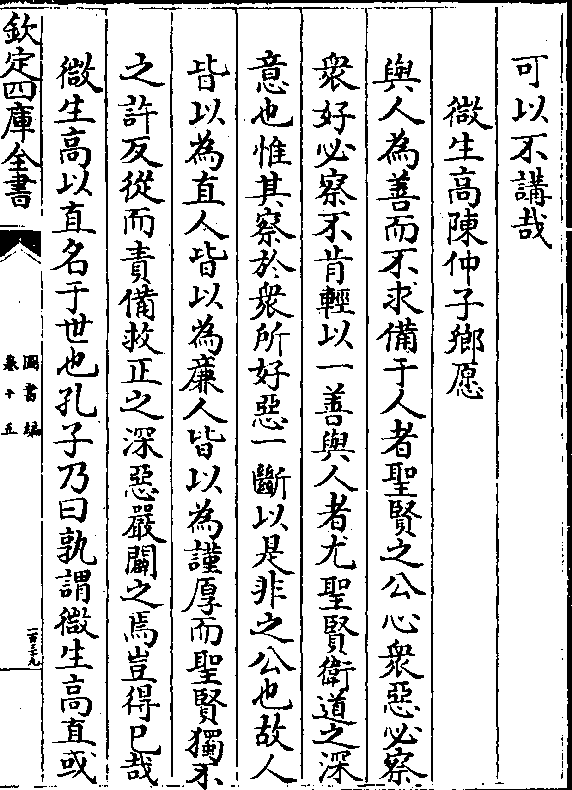 可以不講哉
微生高陳仲子鄉愿
與人為善而不求備于人者聖賢之公心衆惡必察
衆好必察不肯輕以一善與人者尤聖賢衛道之深
意也惟其察於衆所好惡一斷以是非之公也故人
皆以為直人皆以為廉人皆以為謹厚而聖賢獨不
之許反從而責備救正之深惡嚴闢之焉豈得已哉
微生高以直名于世也孔子乃曰孰謂微生高直或
欽定四庫全書
圖書編
卷十五
一百三十九